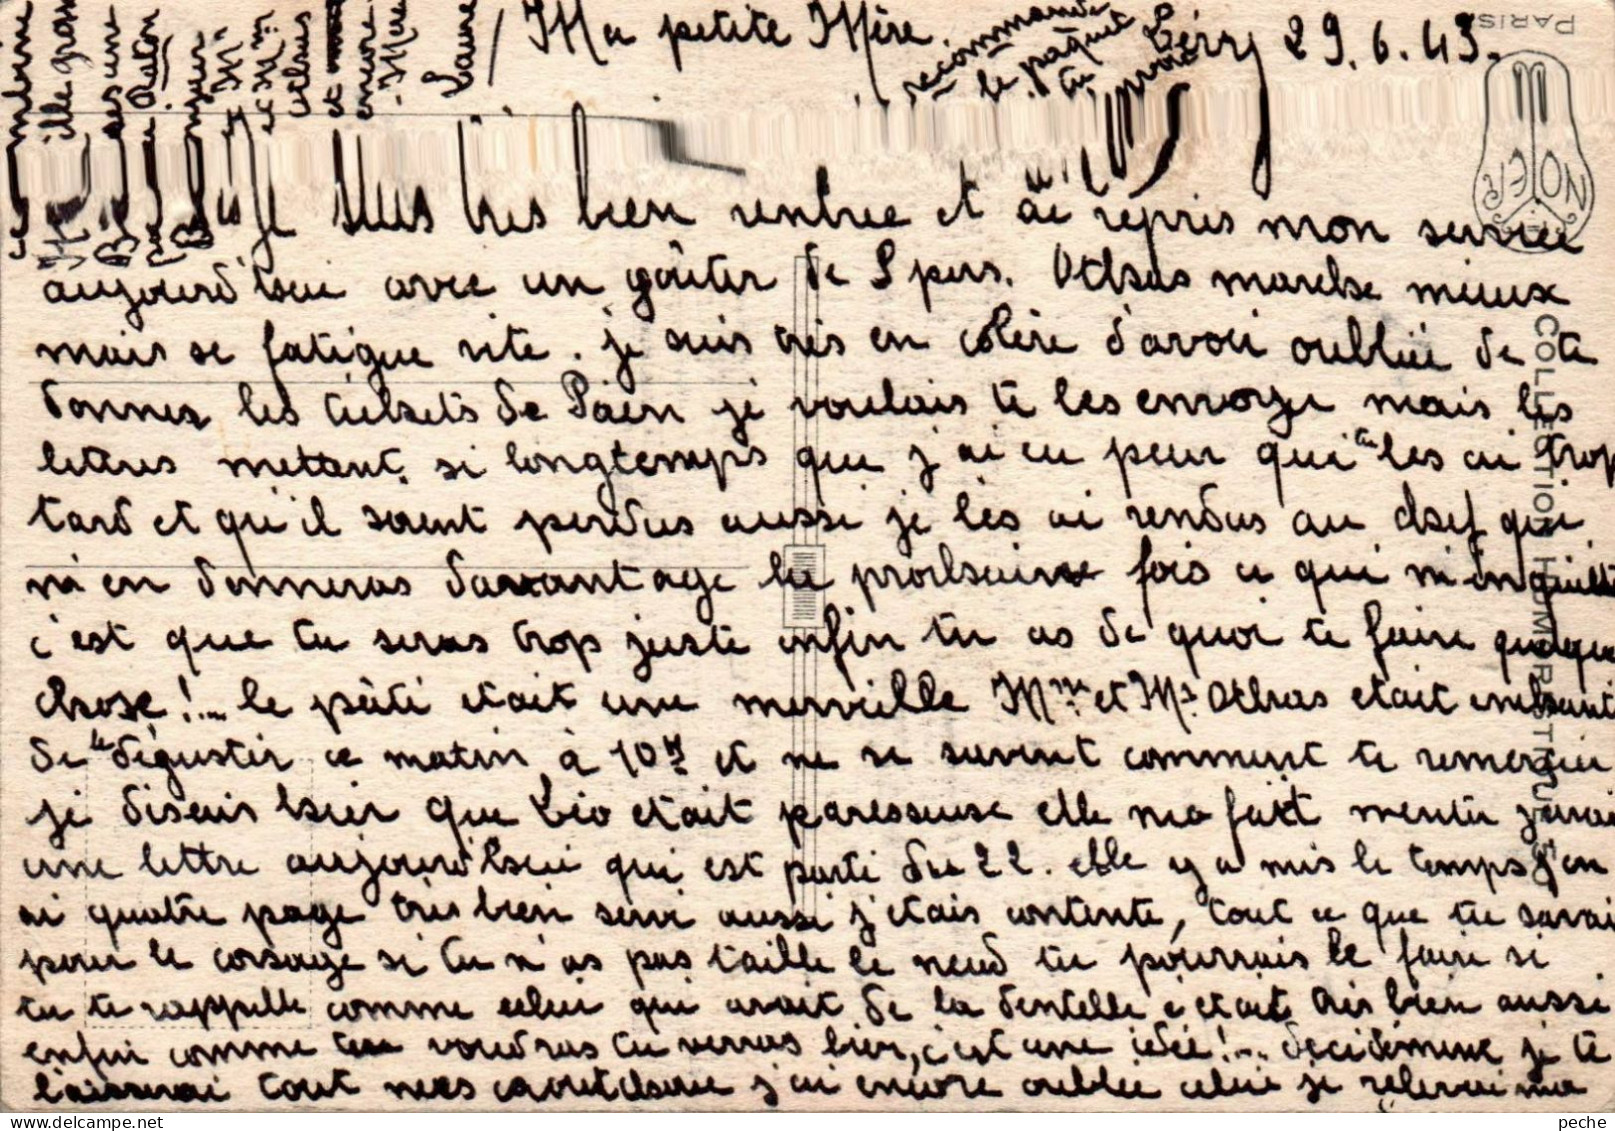 Ma petite Mère.
Léry 29.6.43.
recommande
le paquet
tu
Je suis très bien rentrée et ai repris mon service
aujourd'hui avec un goûter de 8 pers. Othsas marche mieux
mais se fatigue vite. je suis très en colère d'avoir oubliée de te
donner les tickets de Pain je voulais te les envoyer mais les
lettres mettant si longtemps que j'ai eu peur que tu les ai trop
tard et qu'il soient perdus aussi je les ai rendus au chef qui
m'en donneras davantage la prochaine fois ce qui m'inquiète
c'est que tu seras trop juste enfin tu as de quoi te faire quelque
chose!... le pâté etait une merveille Mme et Mr Othsas etait enchanté
de le déguster ce matin à 10h et ne se savent comment te remercier
je disais hier que Léo etait paresseuse elle ma fait mentir j'avai
une lettre aujourd'hui qui est parti du 22. elle y a mis le temps j'en
ai quatre page très bien servi aussi j'etais contente, tout ce que tu savai
pour le corsage si tu n'as pas taille le nœud tu pourrais le faire si
tu te rappelle comme celui qui avait de la dentelle c'etait très bien aussi
enfin comme tu voudras tu verras bien, c'est une idée!... decidemment je te
laisserai tout mes caoutchouc j'ai encore oublié celui je relevai ma
PARIS
NOYER
COLLECTION